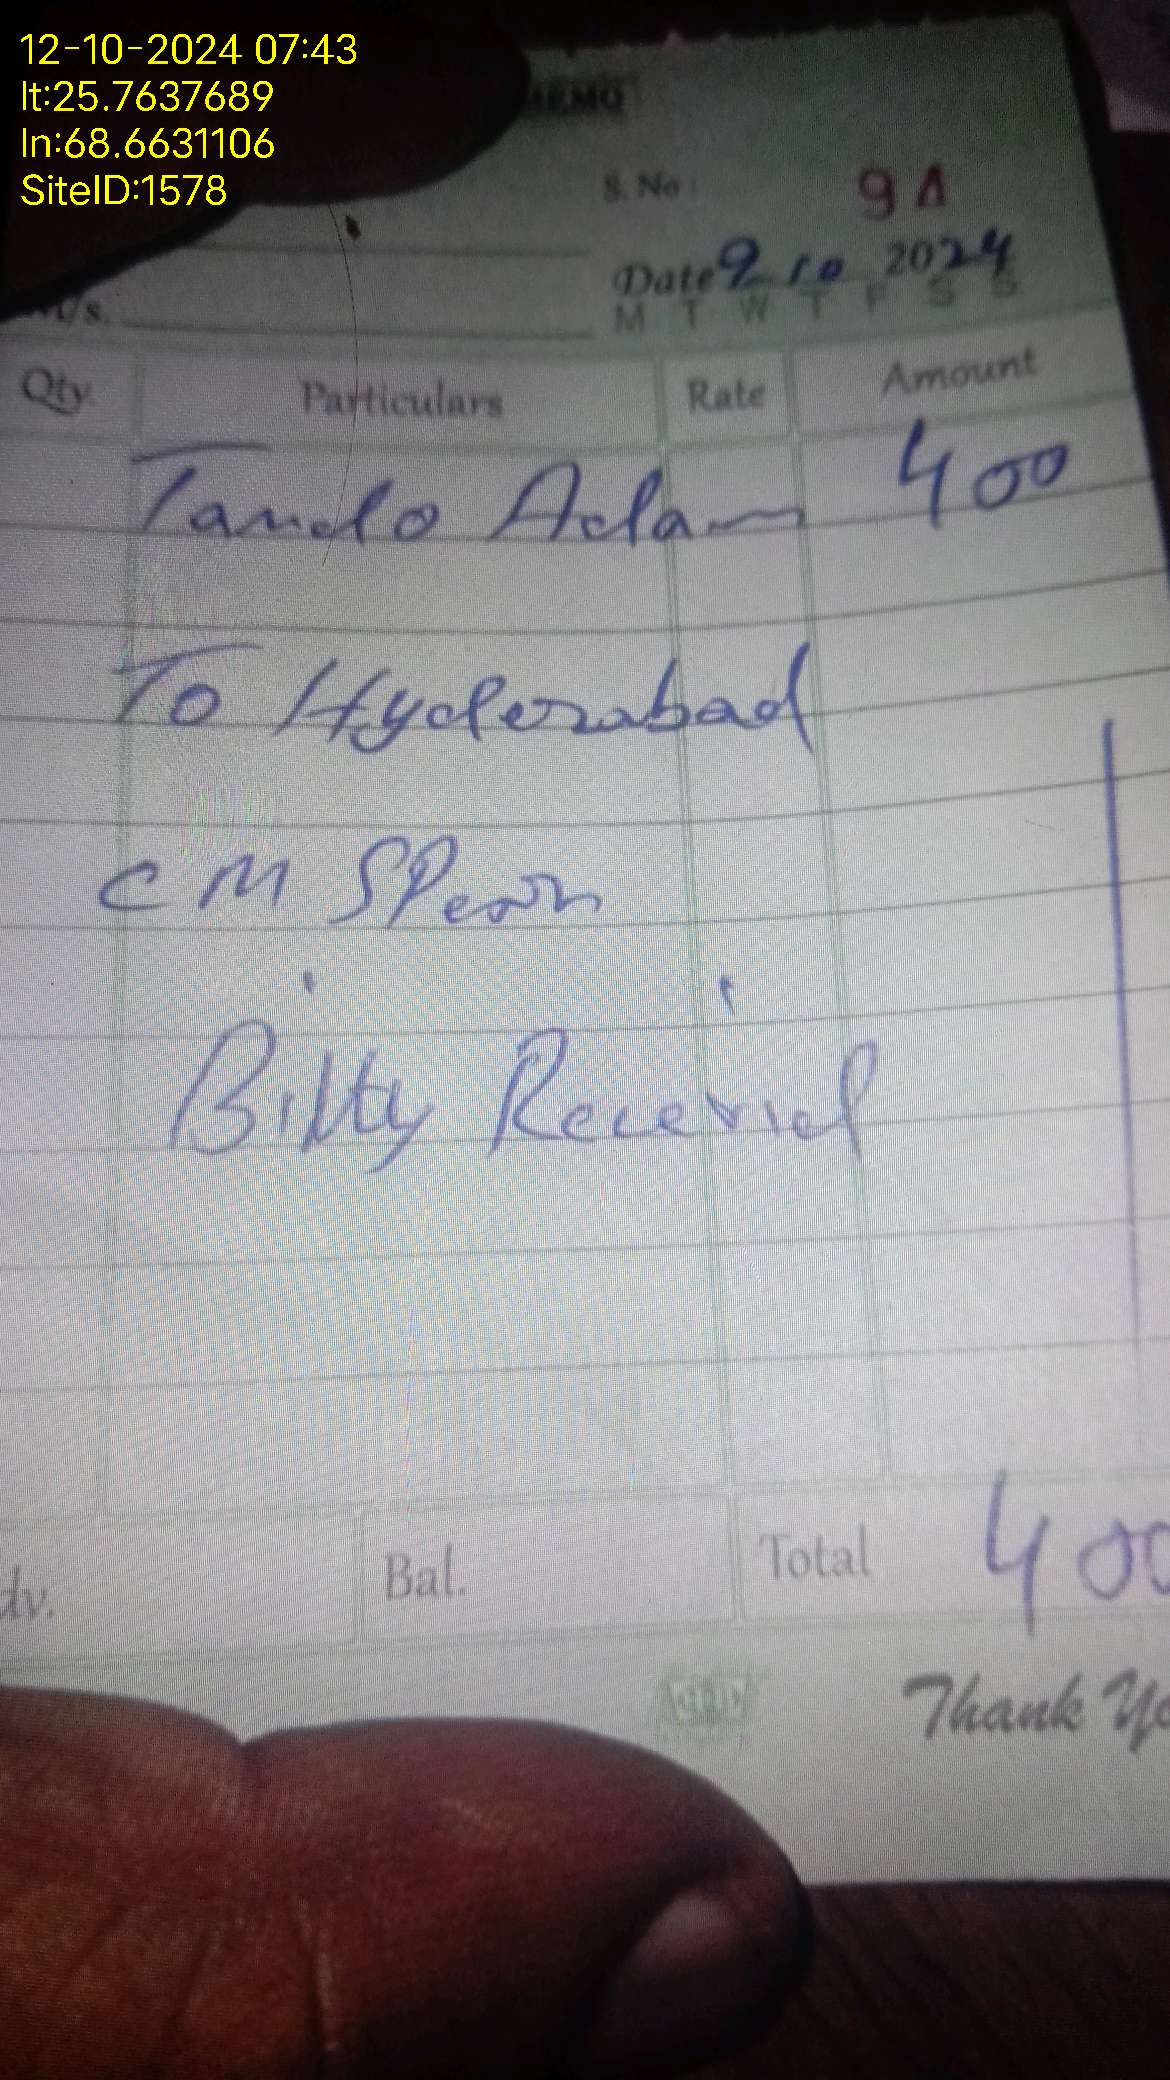 12-10-2024 07:43
lt:25.7637689
ln:68.6631106
SiteID:1578
MEMO
S. No :
Date 9 10 2024
M T W T F S S
M/s.
Qty. Particulars Rate Amount
Tando Adam 400
To Hyderabad
CM
Bilty Recevied
Adv. Bal. Total 400
Thank Yo